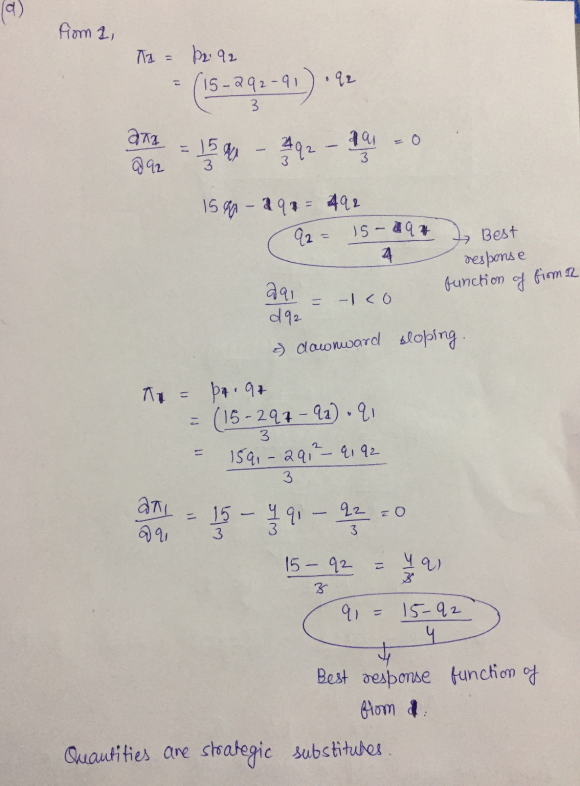 (a)
firm 2,
π2 = p2·q2
= (15-2q2-q1)/3 · q2
∂π2/∂q2 = 15/3 - 4/3 q2 - q1/3 = 0
15 - q1 = 4q2
q2 = (15 - q1)/4 → Best
response
function of firm 2
∂q1/dq2 = -1 < 0
⇒ downward sloping.
π1 = p1·q1
= (15-2q1-q2)/3 · q1
= (15q1 - 2q1² - q1q2)/3
∂π1/∂q1 = 15/3 - 4/3 q1 - q2/3 = 0
(15-q2)/3 = 4/3 q1
q1 = (15-q2)/4
Best response function of
firm 1.
Quantities are strategic substitutes.